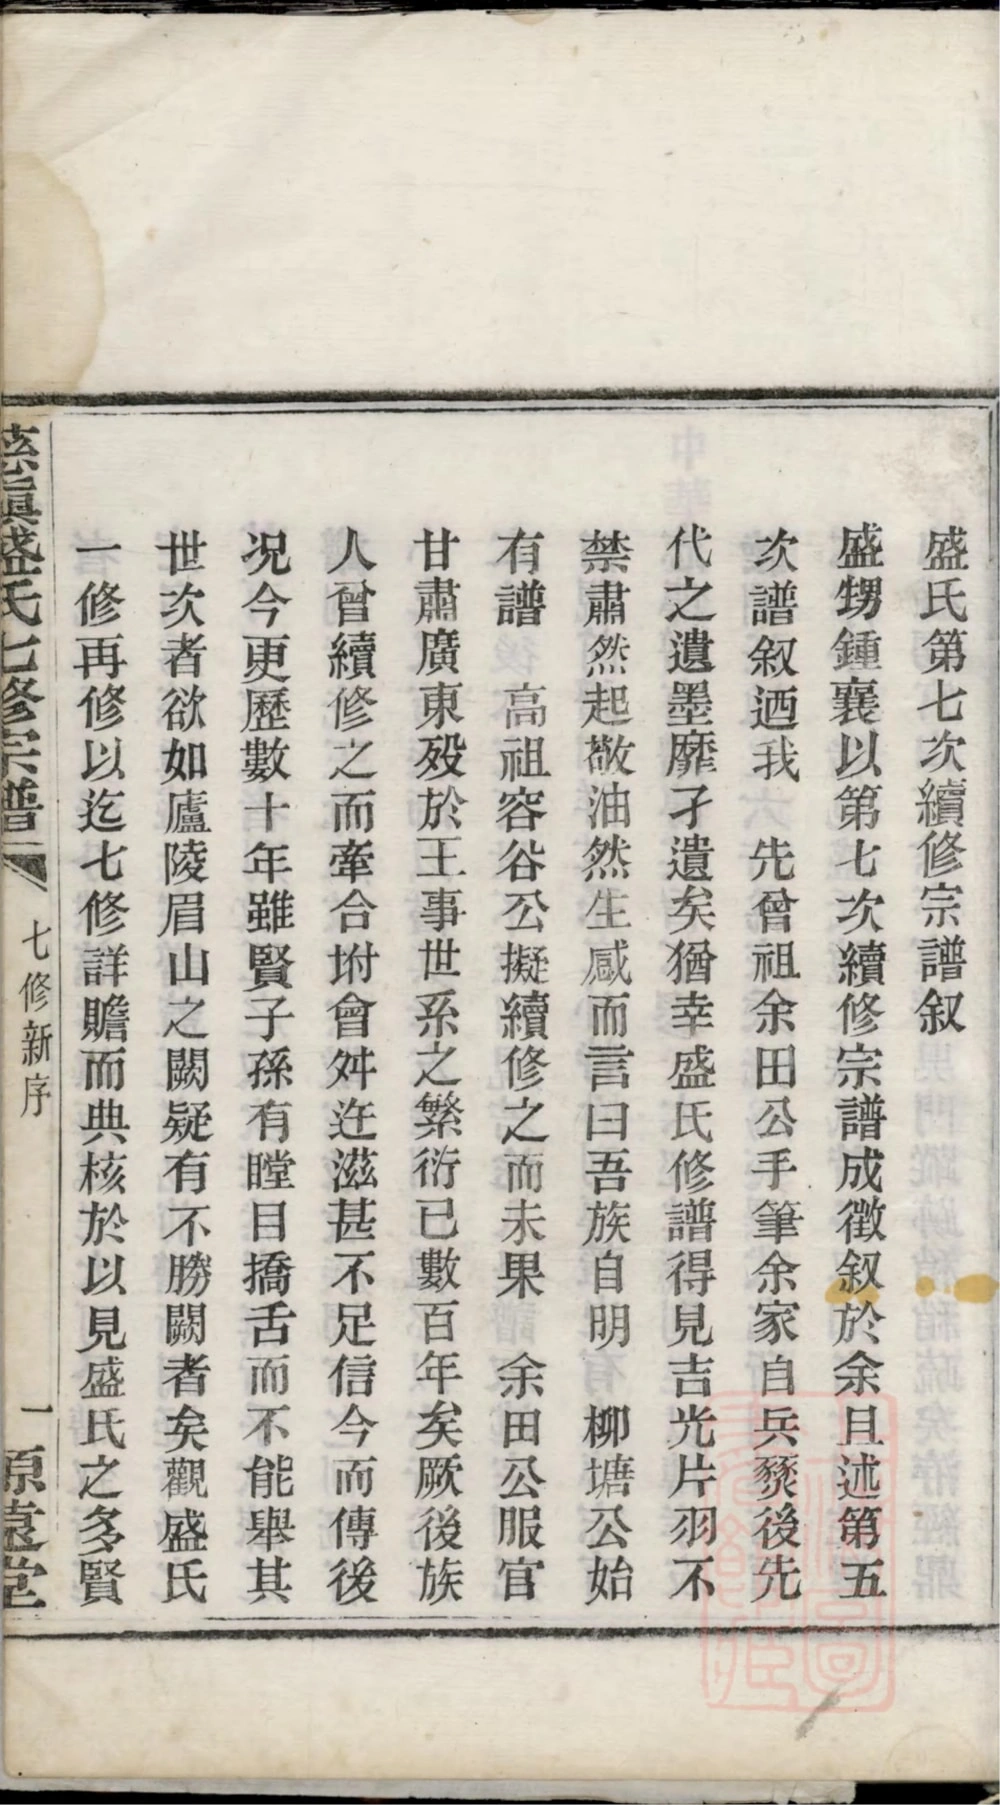 盛氏第七次續修宗譜叙
盛甥鍾襄以第七次續修宗譜成徵叙於余且述第五
次譜叙迺我 先曾祖余田公手筆余家自兵燹後先
代之遺墨靡孑遺矣猶幸盛氏修譜得見吉光片羽不
禁肅然起敬油然生感而言曰吾族自明 柳塘公始
有譜 高祖容谷公擬續修之而未果 余田公服官
甘肅廣東殁於王事世系之繁衍已數百年矣厥後族
人曾續修之而牽合坿會舛迕滋甚不足信今而傳後
况今更歷數十年雖賢子孫有瞠目撟舌而不能舉其
世次者欲如廬陵眉山之闕疑有不勝闕者矣觀盛氏
一修再修以迄七修詳贍而典核於以見盛氏之多賢
慈鎭盛氏七修宗譜
七修新序
一
源遠堂